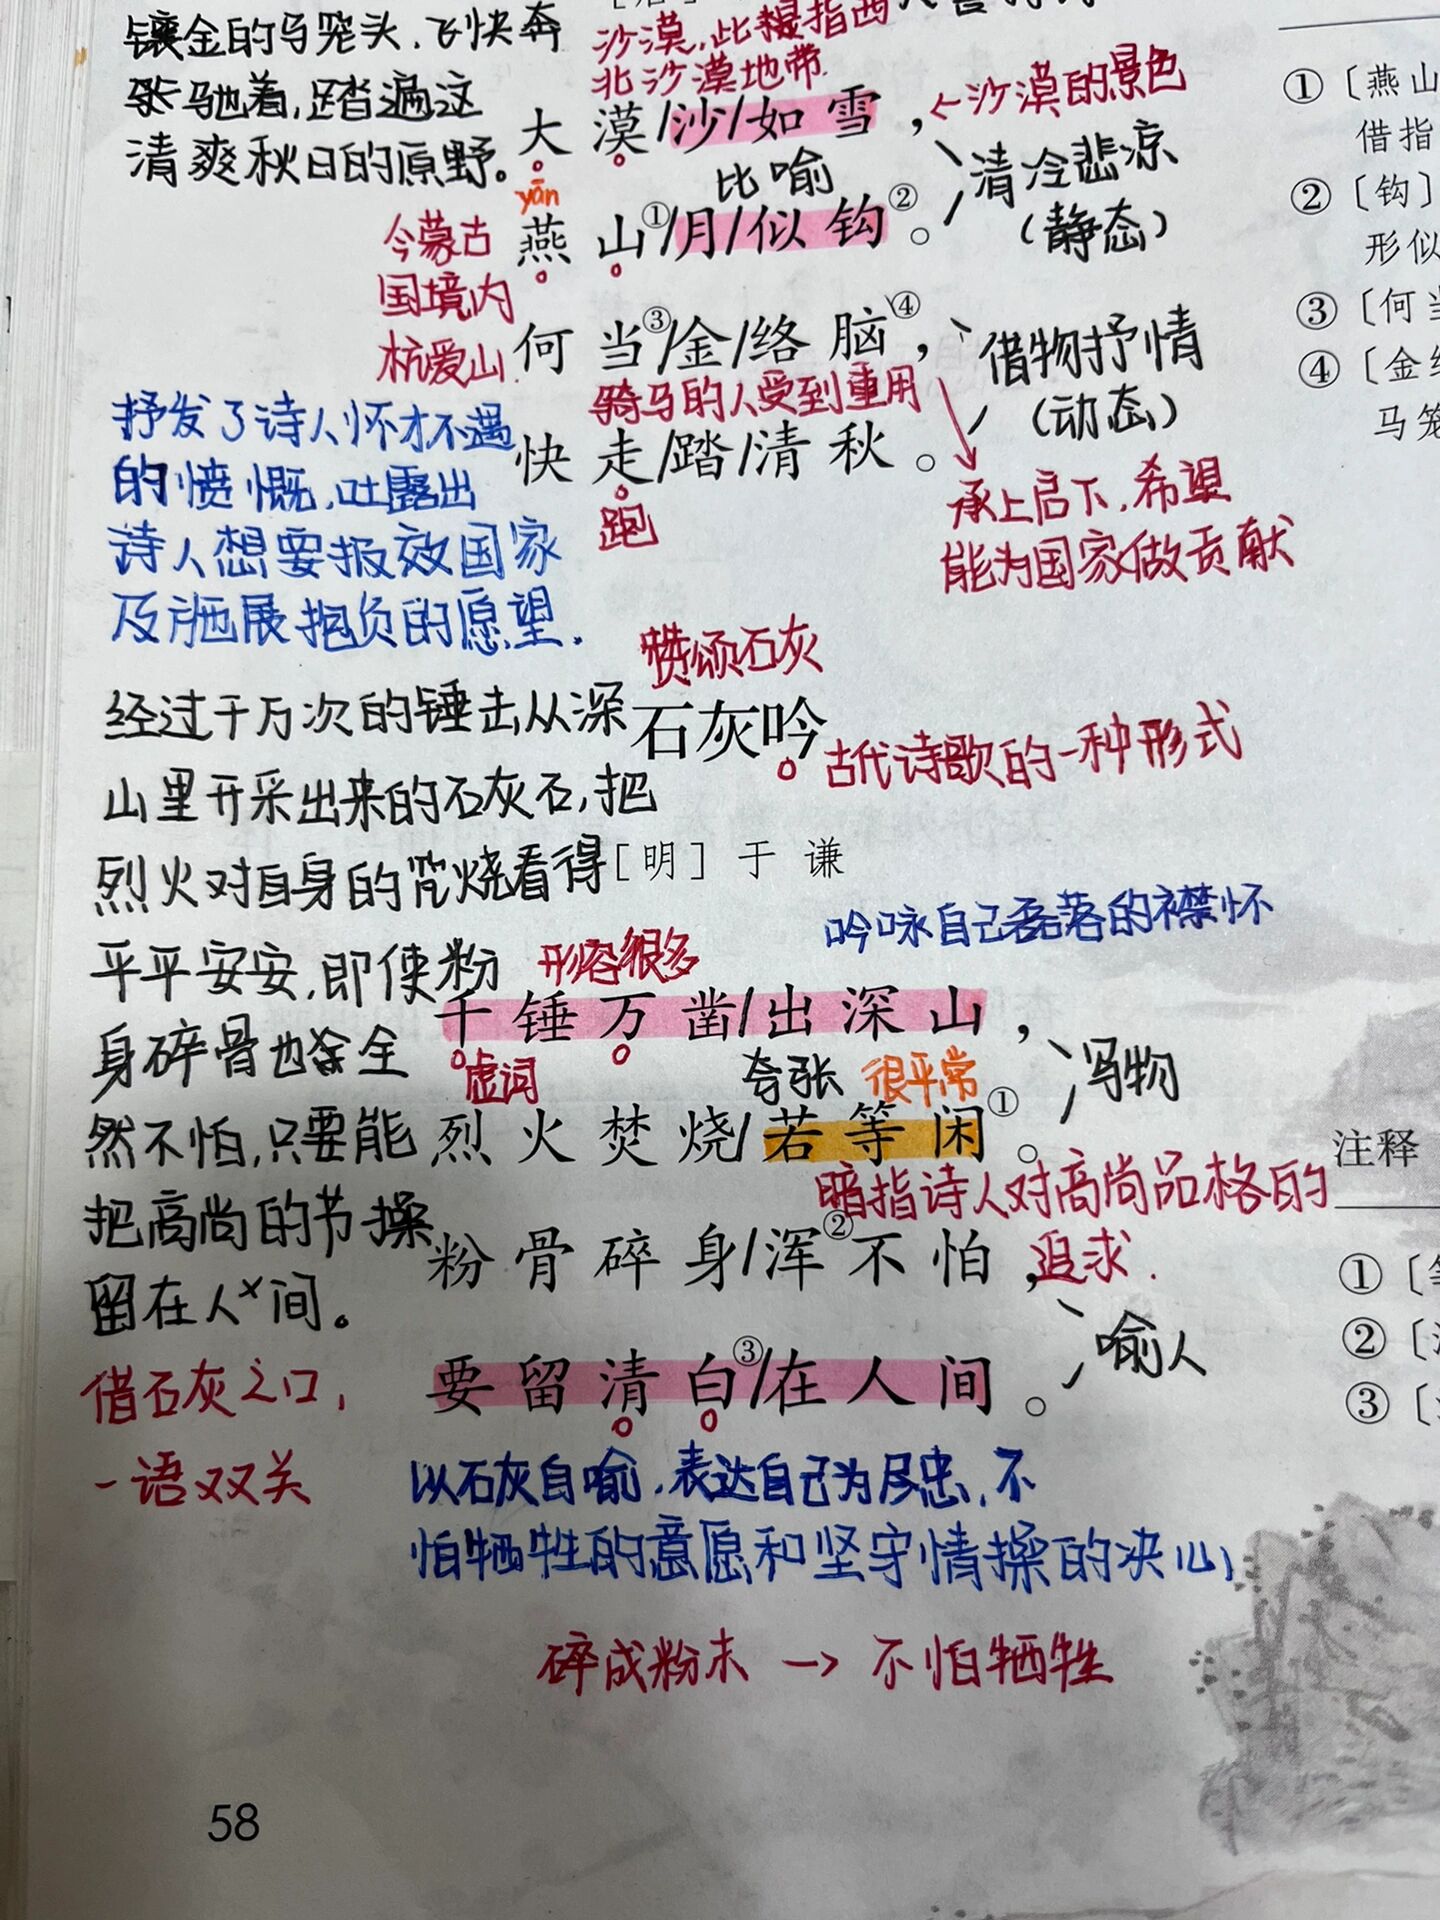 镶金的马笼头，飞快奔
马地着，踏遍这
清爽秋日的原野。
沙漠，此指西
北沙漠地带
大漠/沙/如雪，
←沙漠的景色
比喻
清冷悲凉
（静态）
yān
燕山①/月/似钩②。
今蒙古
国境内
杭爱山
何当③/金/络脑④，
骑马的人受到重用
借物抒情
（动态）
快走/踏/清秋。
跑
承上启下，希望
能为国家做贡献
抒发了诗人怀才不遇
的愤慨，吐露出
诗人想要报效国家
及施展抱负的愿望．
赞颂石灰
石灰吟
古代诗歌的一种形式
[明] 于谦
吟咏自己磊落的襟怀
经过千万次的锤击从深
山里开采出来的石灰石，把
烈火对自身的焚烧看得
平平安安，即使粉
身碎骨也全
然不怕，只要能
把高尚的节操
留在人间。
形容很多
千锤万凿/出深山，
虚词
夸张
很平常
写物
烈火焚烧/若等闲①。
暗指诗人对高尚品格的
追求．
粉骨碎身/浑②不怕，
喻人
要留清白③/在人间。
借石灰之口，
一语双关
以石灰自喻，表达自己为尽忠，不
怕牺牲的意愿和坚守情操的决心
碎成粉末 → 不怕牺牲
58
①〔燕山
借指
②〔钩〕
形似
③〔何当
④〔金络
马笼
注释
①〔等
②〔浑
③〔